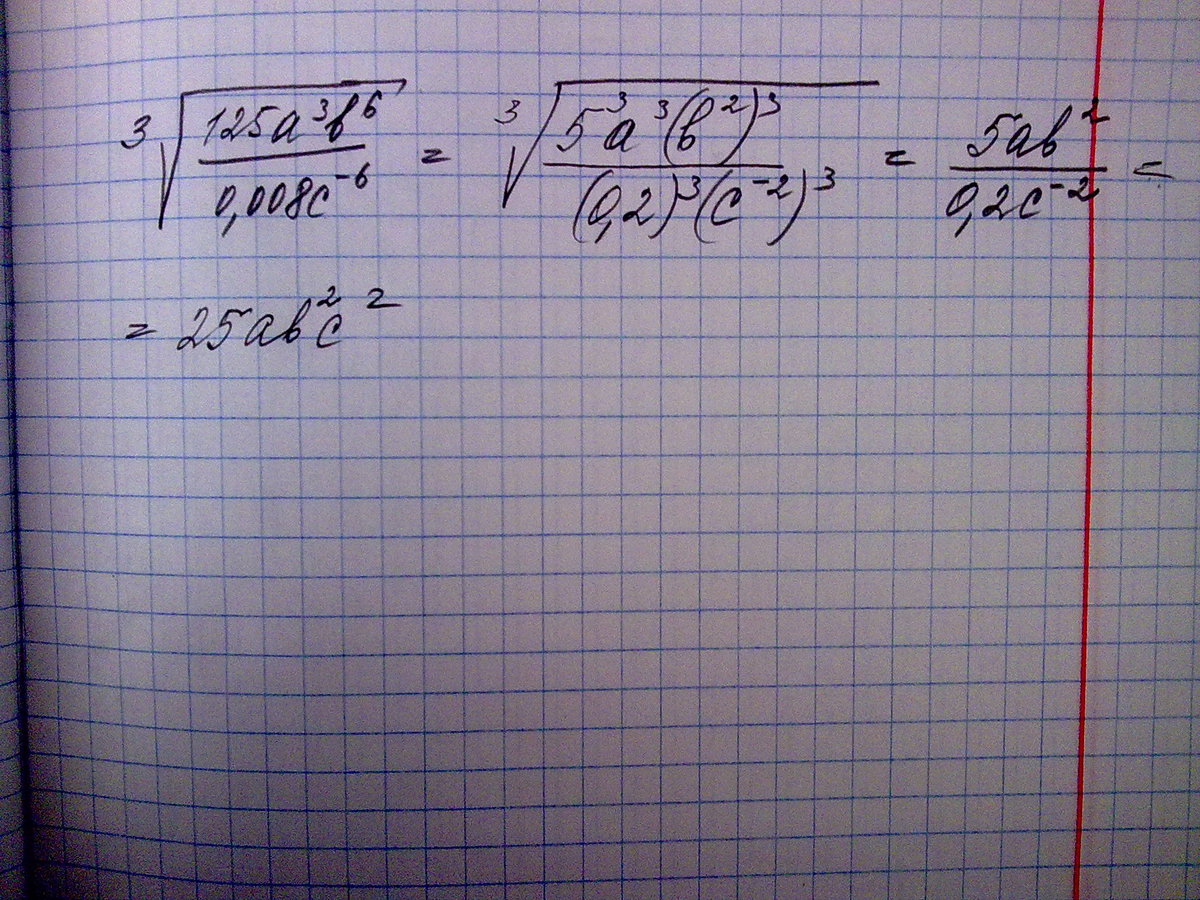 ∛(125a³b⁶ / 0,008c⁻⁶) = ∛(5³a³(b²)³ / (0,2)³(c⁻²)³) = 5ab² / 0,2c⁻² =
= 25ab²c²